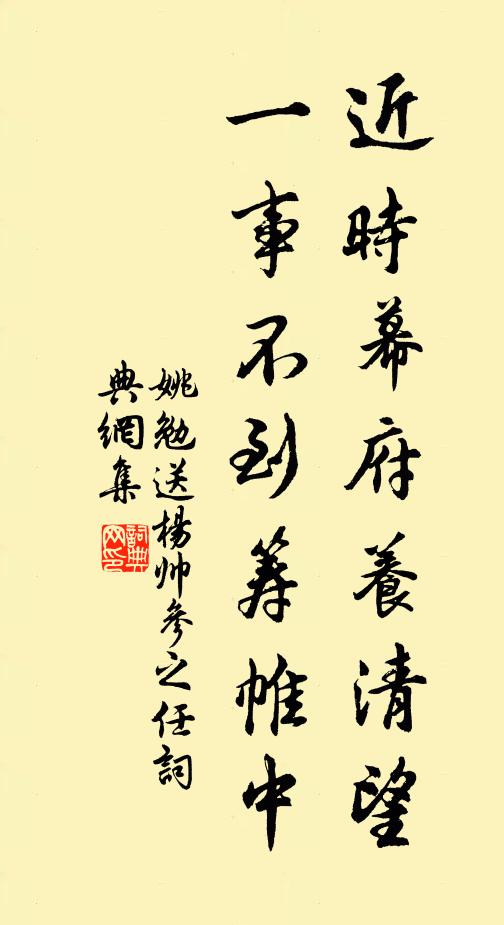 近時幕府養清望
一事不到筹帷中
姚勉送楊帅參之任詞
典網集
詞典網印